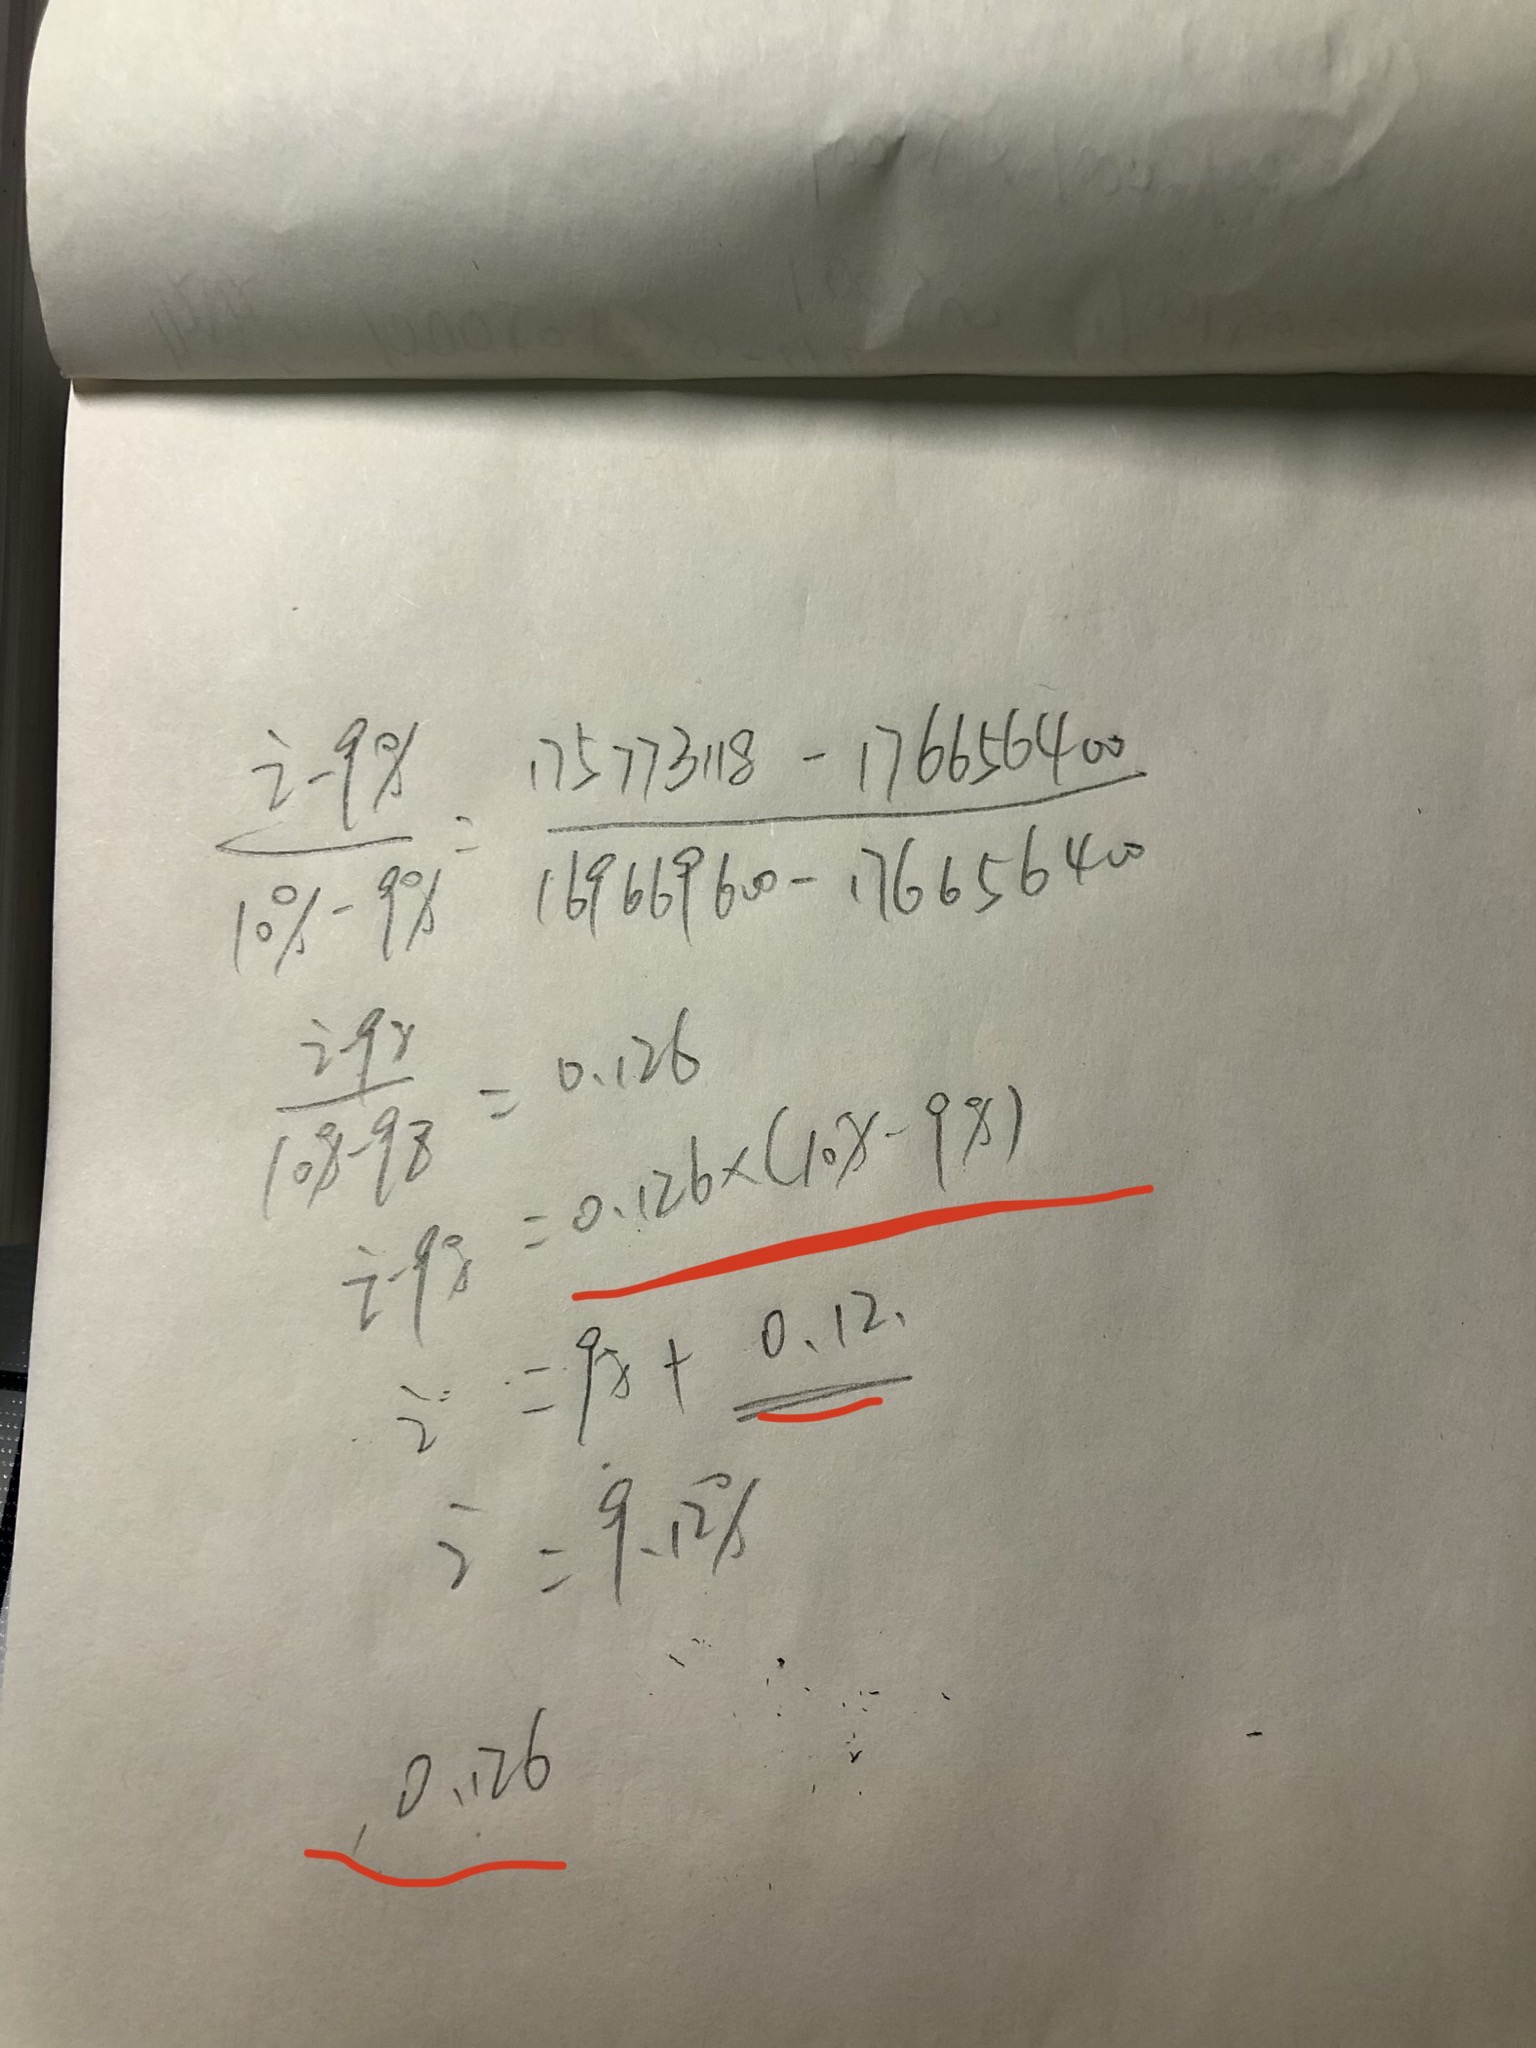 i-9% / 10%-9% = 175773118 - 1766565400 / 169669600 - 176656400
i-9% / 10%-9% = 0.126
i-9% = 0.126×(10%-9%)
i = 9% + 0.12.
i = 9.12%
0.126